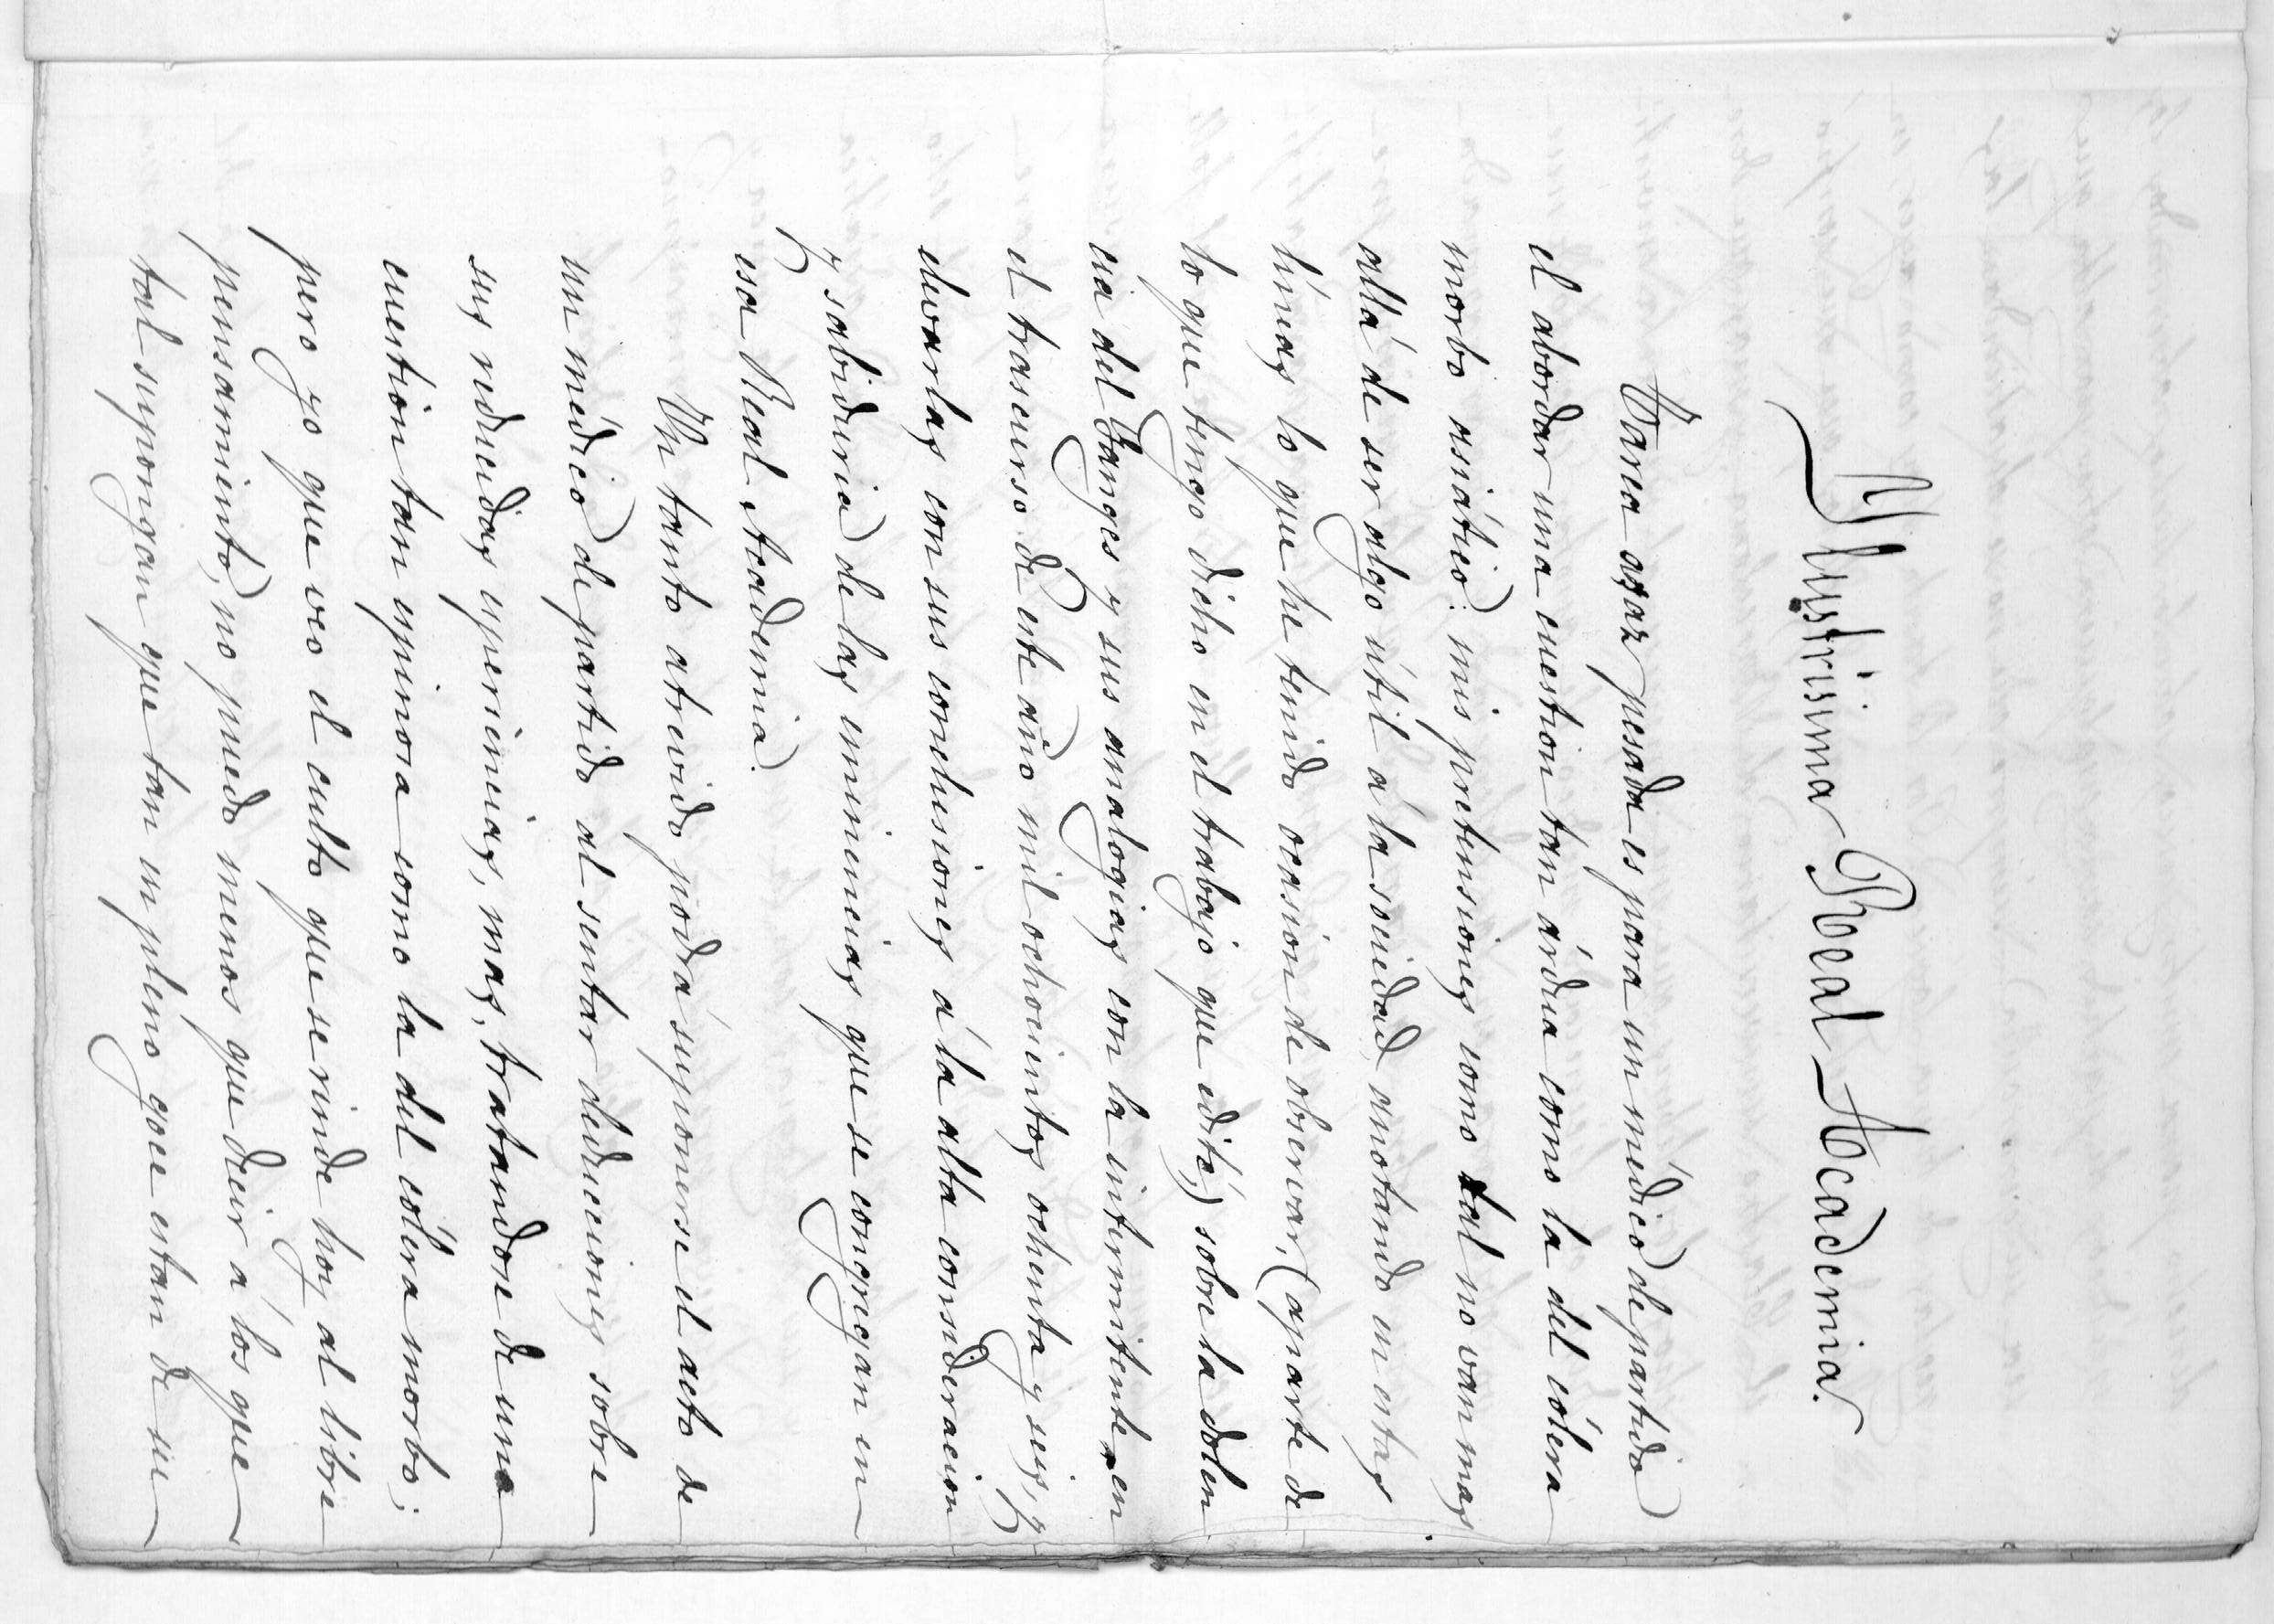 Ylustrisima Real Academia.
Tarea asaz pesada es para un médico de partido
el abordar una cuestion tan árdua como la del cólera
morbo asiático: mis pretensiones como tal no van mas
allá de ser algo útil á la sociedad, anotando en estas
líneas lo que he tenido ocasion de observar, (aparte de
lo que tengo dicho en el trabajo que edité,) sobre la dolen
cia del Ganges y sus analogias con la intermitente, en
el trascurso de este año mil ochocientos ochenta y seis, y
elevarlas con sus conclusiones á la alta consideracion
y sabiduria de las eminencias que se congregan en
esa Real Academia.
Un tanto atrevido podrá suponerse el acto de
un médico de partido al sentar deducciones sobre
sus reducidas esperiencias, mas, tratandose de una
cuestion tan espinosa como la del cólera morbo;
pero yo que veo el culto que se rinde hoy al libre
pensamiento, no puedo menos que decir á los que
tal supongan que tan en pleno goce estan de su